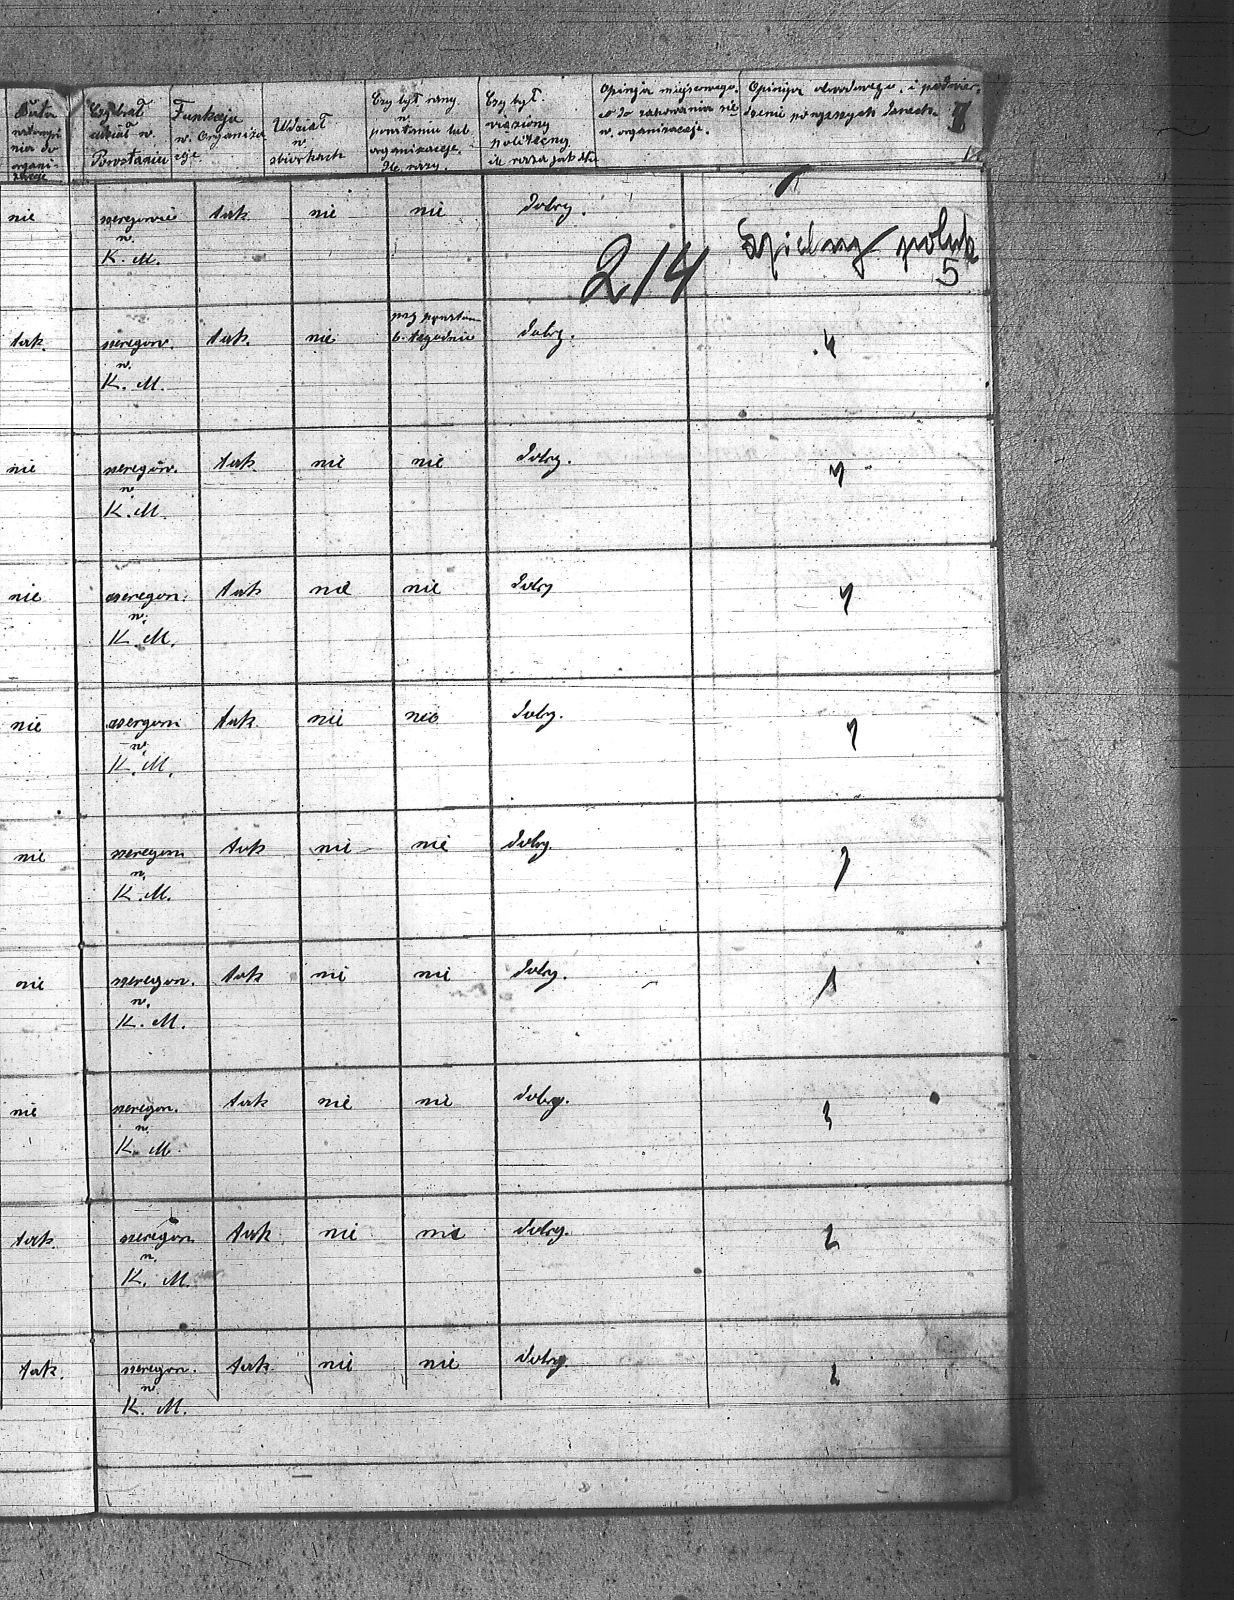 Data
nia do
organi-
zacji
Czy brał
udział w.
Powstaniu
Funkcja
w. Organiza
cji
Udział
w
zbiorkach
Czy był ranny
w
powstaniu lub
organizacji.
Ile razy.
Czy był
więziony
politczny
ile razy jak dłu
Opinja miejscowego.
co do zachowania się
w. organizacji.
Opinja obwodowego. i potwier.
dzenie powyższych danech.
nie
szeregowiec
w.
K. M.
tak
nie
nie
dobry.
214
Dzielny polak
5
tak.
szeregow.
w.
K. M.
tak.
nie
przy powstan
6. tygodnie
dobry.
nie
szeregow.
w.
K. M.
tak
nie
nie
dobry.
nie
szeregow.
w.
K. M.
tak
nie
nie
dobry
nie
szeregow
w.
K. M.
tak
nie
nie
dobry.
nie
szeregow
w.
K. M.
tak
nie
nie
dobry.
nie
szeregow.
w.
K. M.
tak
nie
nie
dobry.
nie
szeregow.
w.
K. M.
tak
nie
nie
dobry.
tak.
szeregow
w.
K. M.
tak
nie
nie
dobry.
tak.
szeregow.
w.
K. M.
tak
nie
nie
dobry